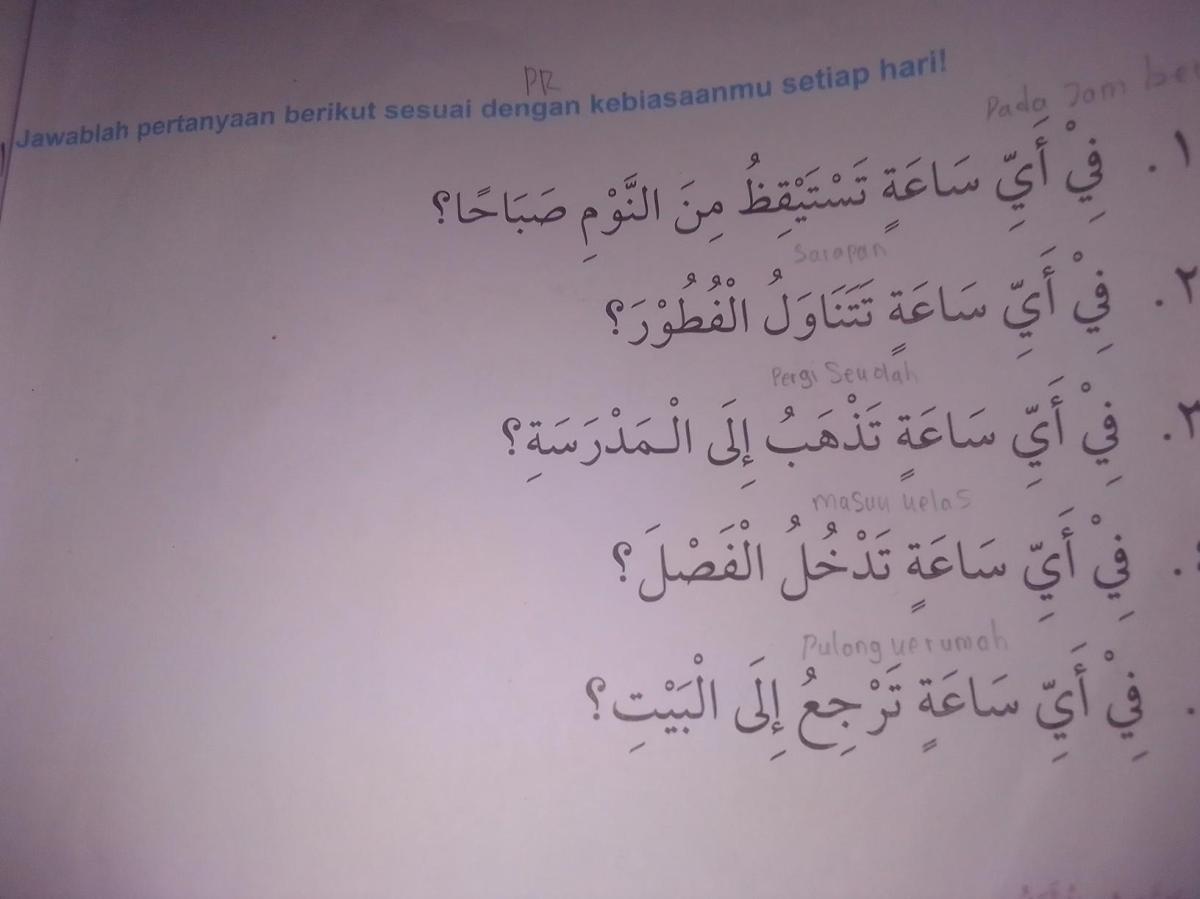 PR
Jawablah pertanyaan berikut sesuai dengan kebiasaanmu setiap hari!
Pada Jam
١. فِيْ أَيِّ سَاعَةٍ تَسْتَيْقِظُ مِنَ النَّوْمِ صَبَاحًا؟
Sarapan
٢. فِيْ أَيِّ سَاعَةٍ تَتَنَاوَلُ الْفُطُوْرَ؟
Pergi Seuolah
٣. فِيْ أَيِّ سَاعَةٍ تَذْهَبُ إِلَى الْـمَدْرَسَةِ؟
masuu uelas
٤. فِيْ أَيِّ سَاعَةٍ تَدْخُلُ الْفَصْلَ؟
Pulong uerumah
. فِيْ أَيِّ سَاعَةٍ تَرْجِعُ إِلَى الْبَيْتِ؟